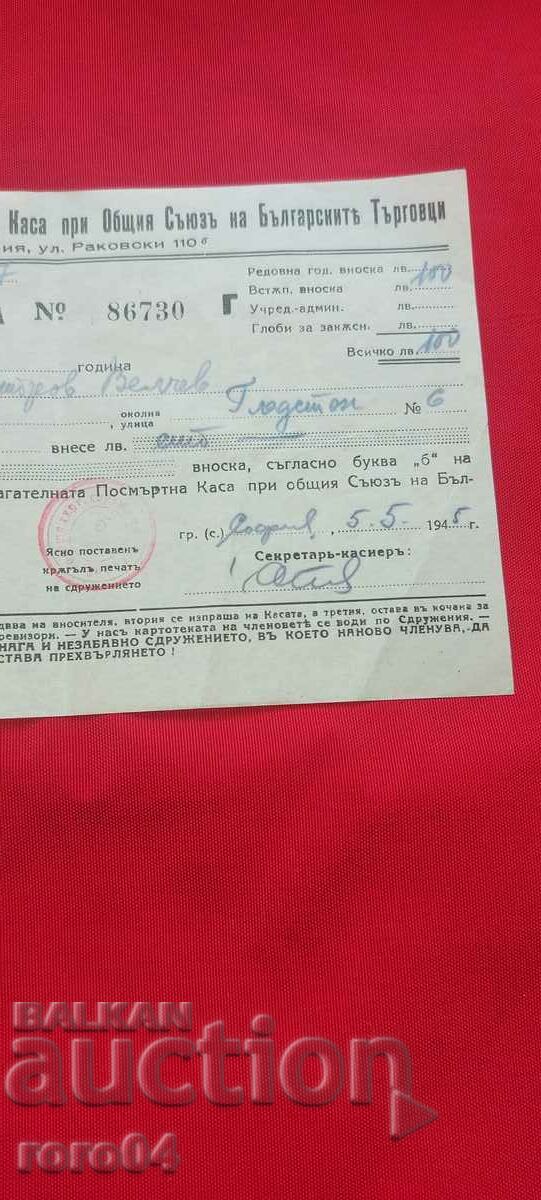 Каса при Общия Съюзъ на Българскитѣ Търговци
ул. Раковски 110 б
№ 86730 Г
Редовна год. вноска лв. 100
Встѫп. вноска „
Учред.-админ. „
Глоби за закжсн. лв.
Всичко лв. 100
година
Велчев
околия
улица Гладстон № 6
внесе лв. сто
вноска, съгласно буква „б“ на
агателната Посмъртна Каса при общия Съюзъ на Бъл-
гр. (с.) София, 5.5. 1945 г.
Ясно поставенъ
крѫгълъ печатъ
на сдружението
Секретарь-касиеръ:
дава на вносителя, втория се изпраща на Касата, а третия, остава въ кочана за
ревизори. — У насъ картотеката на членоветѣ се води по Сдружения. —
НАГА И НЕЗАБАВНО СДРУЖЕНИЕТО, ВЪ КОЕТО НАНОВО ЧЛЕНУВА, ДА
СТАВА ПРЕХВЪРЛЯНЕТО !
BALKAN
auction
roro04